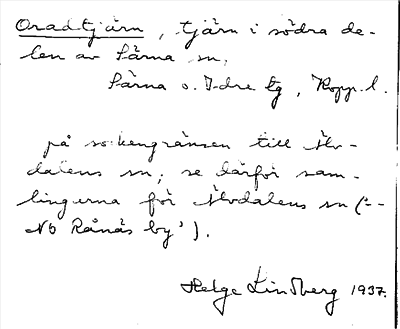 Oradtjärn, tjärn i södra de-
len av Särna sn,
Särna o. Idre tg, Kopp. l.
på sockengränsen till Älv-
dalens sn; se därför sam-
lingarna för Älvdalens sn (:-
NO Rånäs by').
Helge Lindberg 1937.